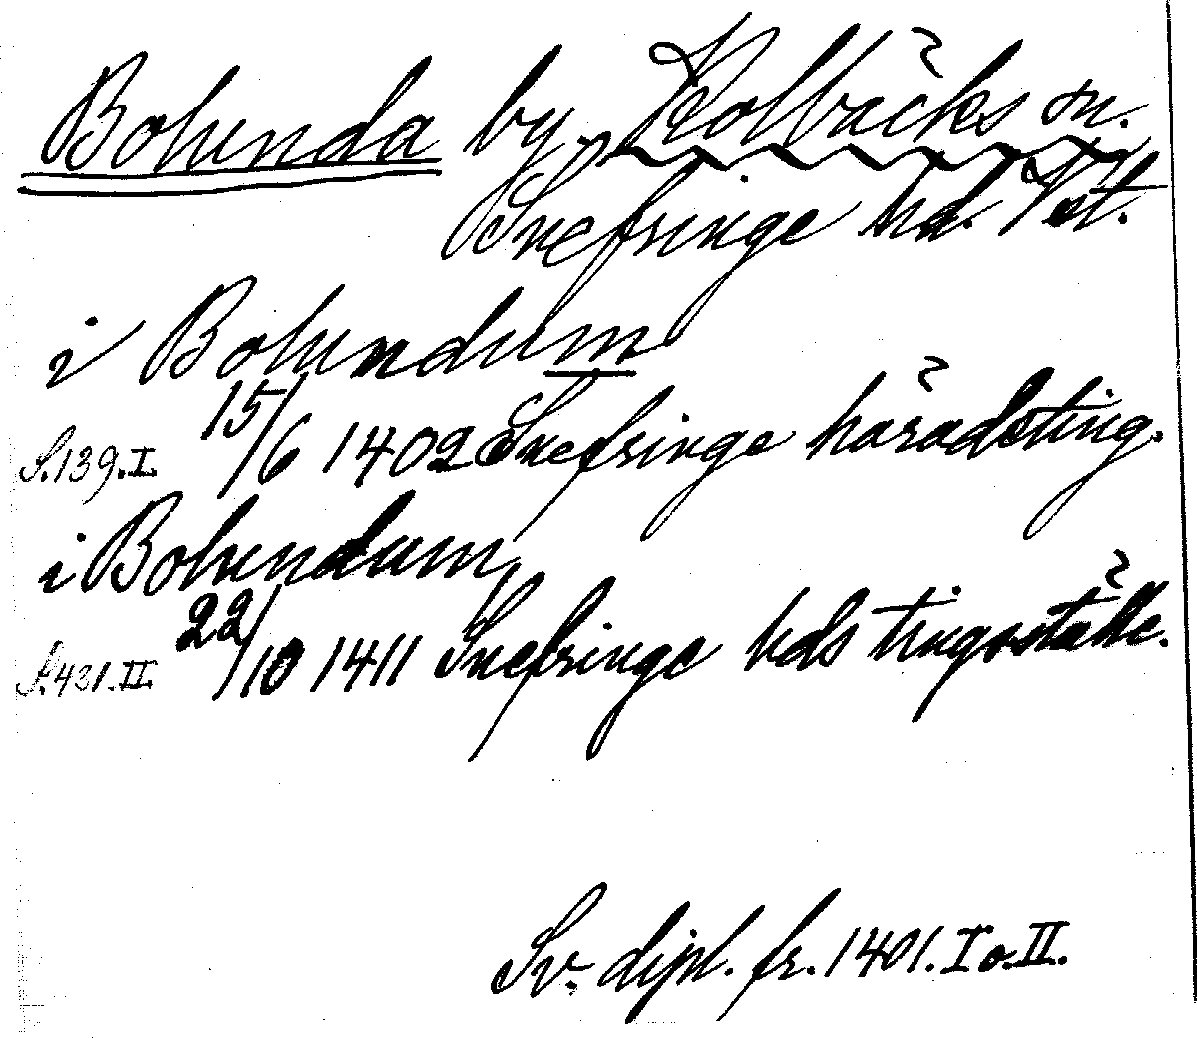 Bohunda by, Kolbäcks sn.
Snefringe hd. Vst.
i Bohundum
S. 139. I. 15/6 1402 Snefringe häradsting.
i Bohundum,
S. 431. II. 22/10 1411 Snefringe hds tingställe.
Sv. dipl. fr. 1401. I o. II.